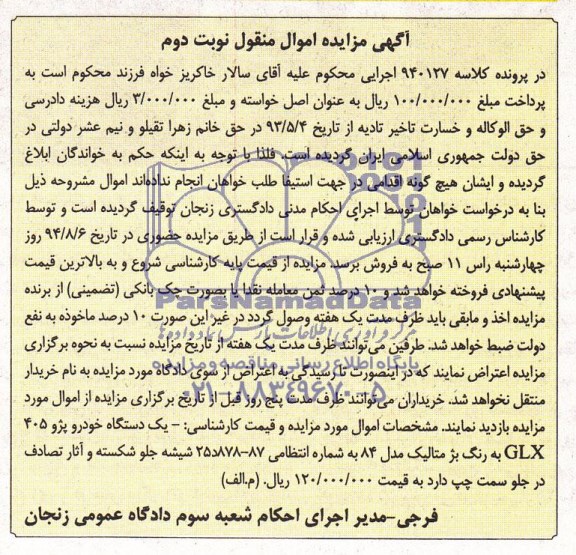 آگهی مزایده اموال منقول نوبت دوم
در پرونده کلاسه ۹۴۰۱۲۷ اجرایی محکوم علیه آقای سالار خاکریز خواه فرزند محکوم است به
پرداخت مبلغ ۱۰۰/۰۰۰/۰۰۰ ریال به عنوان اصل خواسته و مبلغ ۳/۰۰۰/۰۰۰ ریال هزینه دادرسی
و حق الوکاله و خسارت تاخیر تادیه از تاریخ ۹۳/۵/۴ در حق خانم زهرا تقیلو و نیم عشر دولتی در
حق دولت جمهوری اسلامی ایران گردیده است. فلذا با توجه به اینکه حکم به خواندگان ابلاغ
گردیده و ایشان هیچ گونه اقدامی در جهت استیفا طلب خواهان انجام نداده‌اند اموال مشروحه ذیل
بنا به درخواست خواهان توسط اجرای احکام مدنی دادگستری زنجان توقیف گردیده است و توسط
کارشناس رسمی دادگستری ارزیابی شده و قرار است از طریق مزایده حضوری در تاریخ ۹۴/۸/۶ روز
چهارشنبه راس ۱۱ صبح به فروش برسد. مزایده از قیمت پایه کارشناسی شروع و به بالاترین قیمت
پیشنهادی فروخته خواهد شد و ۱۰ درصد ثمن معامله نقدا یا بصورت چک بانکی (تضمینی) از برنده
مزایده اخذ و مابقی باید ظرف مدت یک هفته وصول گردد در غیر این صورت ۱۰ درصد ماخوذه به نفع
دولت ضبط خواهد شد. طرفین می‌توانند ظرف مدت یک هفته از تاریخ مزایده نسبت به نحوه برگزاری
مزایده اعتراض نمایند که در اینصورت تا رسیدگی به اعتراض از سوی دادگاه مورد مزایده به نام خریدار
منتقل نخواهد شد. خریداران می‌توانند ظرف مدت پنج روز قبل از تاریخ برگزاری مزایده از اموال مورد
مزایده بازدید نمایند. مشخصات اموال مورد مزایده و قیمت کارشناسی: - یک دستگاه خودرو پژو ۴۰۵
GLX به رنگ بژ متالیک مدل ۸۴ به شماره انتظامی ۸۷-۸۷۸د۲۵ شیشه جلو شکسته و آثار تصادف
در جلو سمت چپ دارد به قیمت ۱۲۰/۰۰۰/۰۰۰ ریال. (م.الف)
فرجی-مدیر اجرای احکام شعبه سوم دادگاه عمومی زنجان
ParsNamadData
پایگاه اطلاع رسانی مناقصه و مزایده
۰۲۱-۸۸۳۴۹۶۷۰-۵